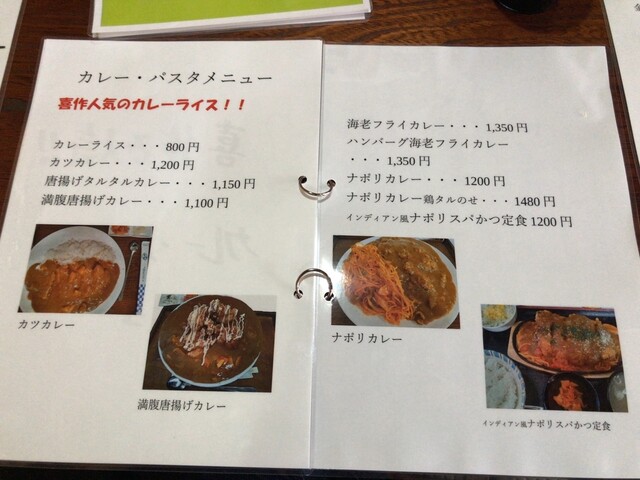 カレー・パスタメニュー
喜作人気のカレーライス！！
カレーライス・・・800円
カツカレー・・・1,200円
唐揚げタルタルカレー・・・1,150円
満腹唐揚げカレー・・・1,100円
カツカレー
満腹唐揚げカレー
海老フライカレー・・・1,350円
ハンバーグ海老フライカレー
・・・1,350円
ナポリカレー・・・1200円
ナポリカレー鶏タルのせ・・・1480円
インディアン風ナポリスパかつ定食1200円
ナポリカレー
インディアン風ナポリスパかつ定食